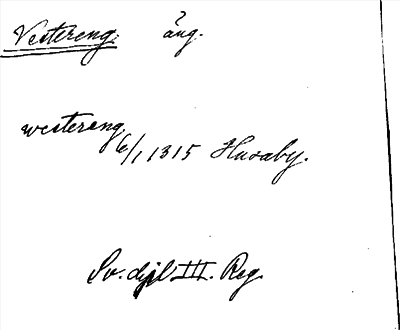 Vestereng. äng.
westereng. 6/1 1315 Husaby.
Sv. dipl III. Reg.